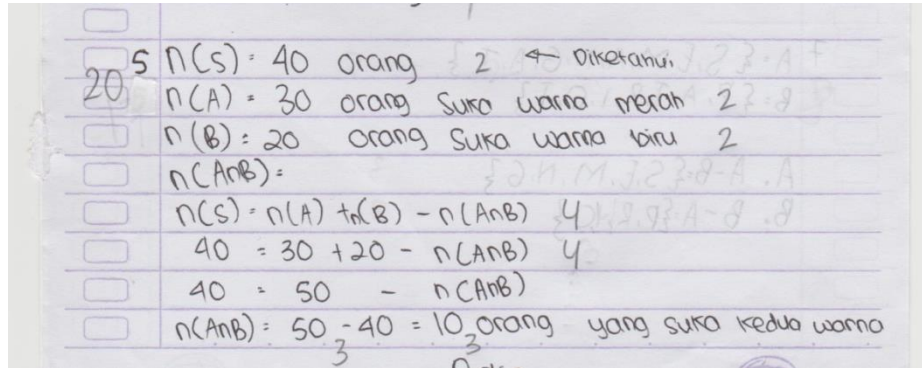 5 n(S) = 40 orang 2 ← Diketahui
20 n(A) = 30 orang suka warna merah 2
n(B) = 20 orang suka warna biru 2
n(A∩B) =
n(S) = n(A) + n(B) - n(A∩B) 4
40 = 30 + 20 - n(A∩B) 4
40 = 50 - n(A∩B)
n(A∩B) = 50 - 40 = 10 orang yang suka kedua warna
3 3